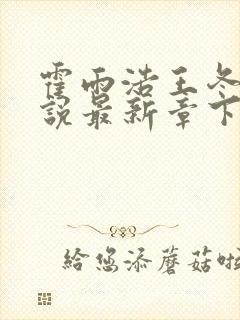 霍雨浩王冬
說最新章下
給您添蘑菇啦